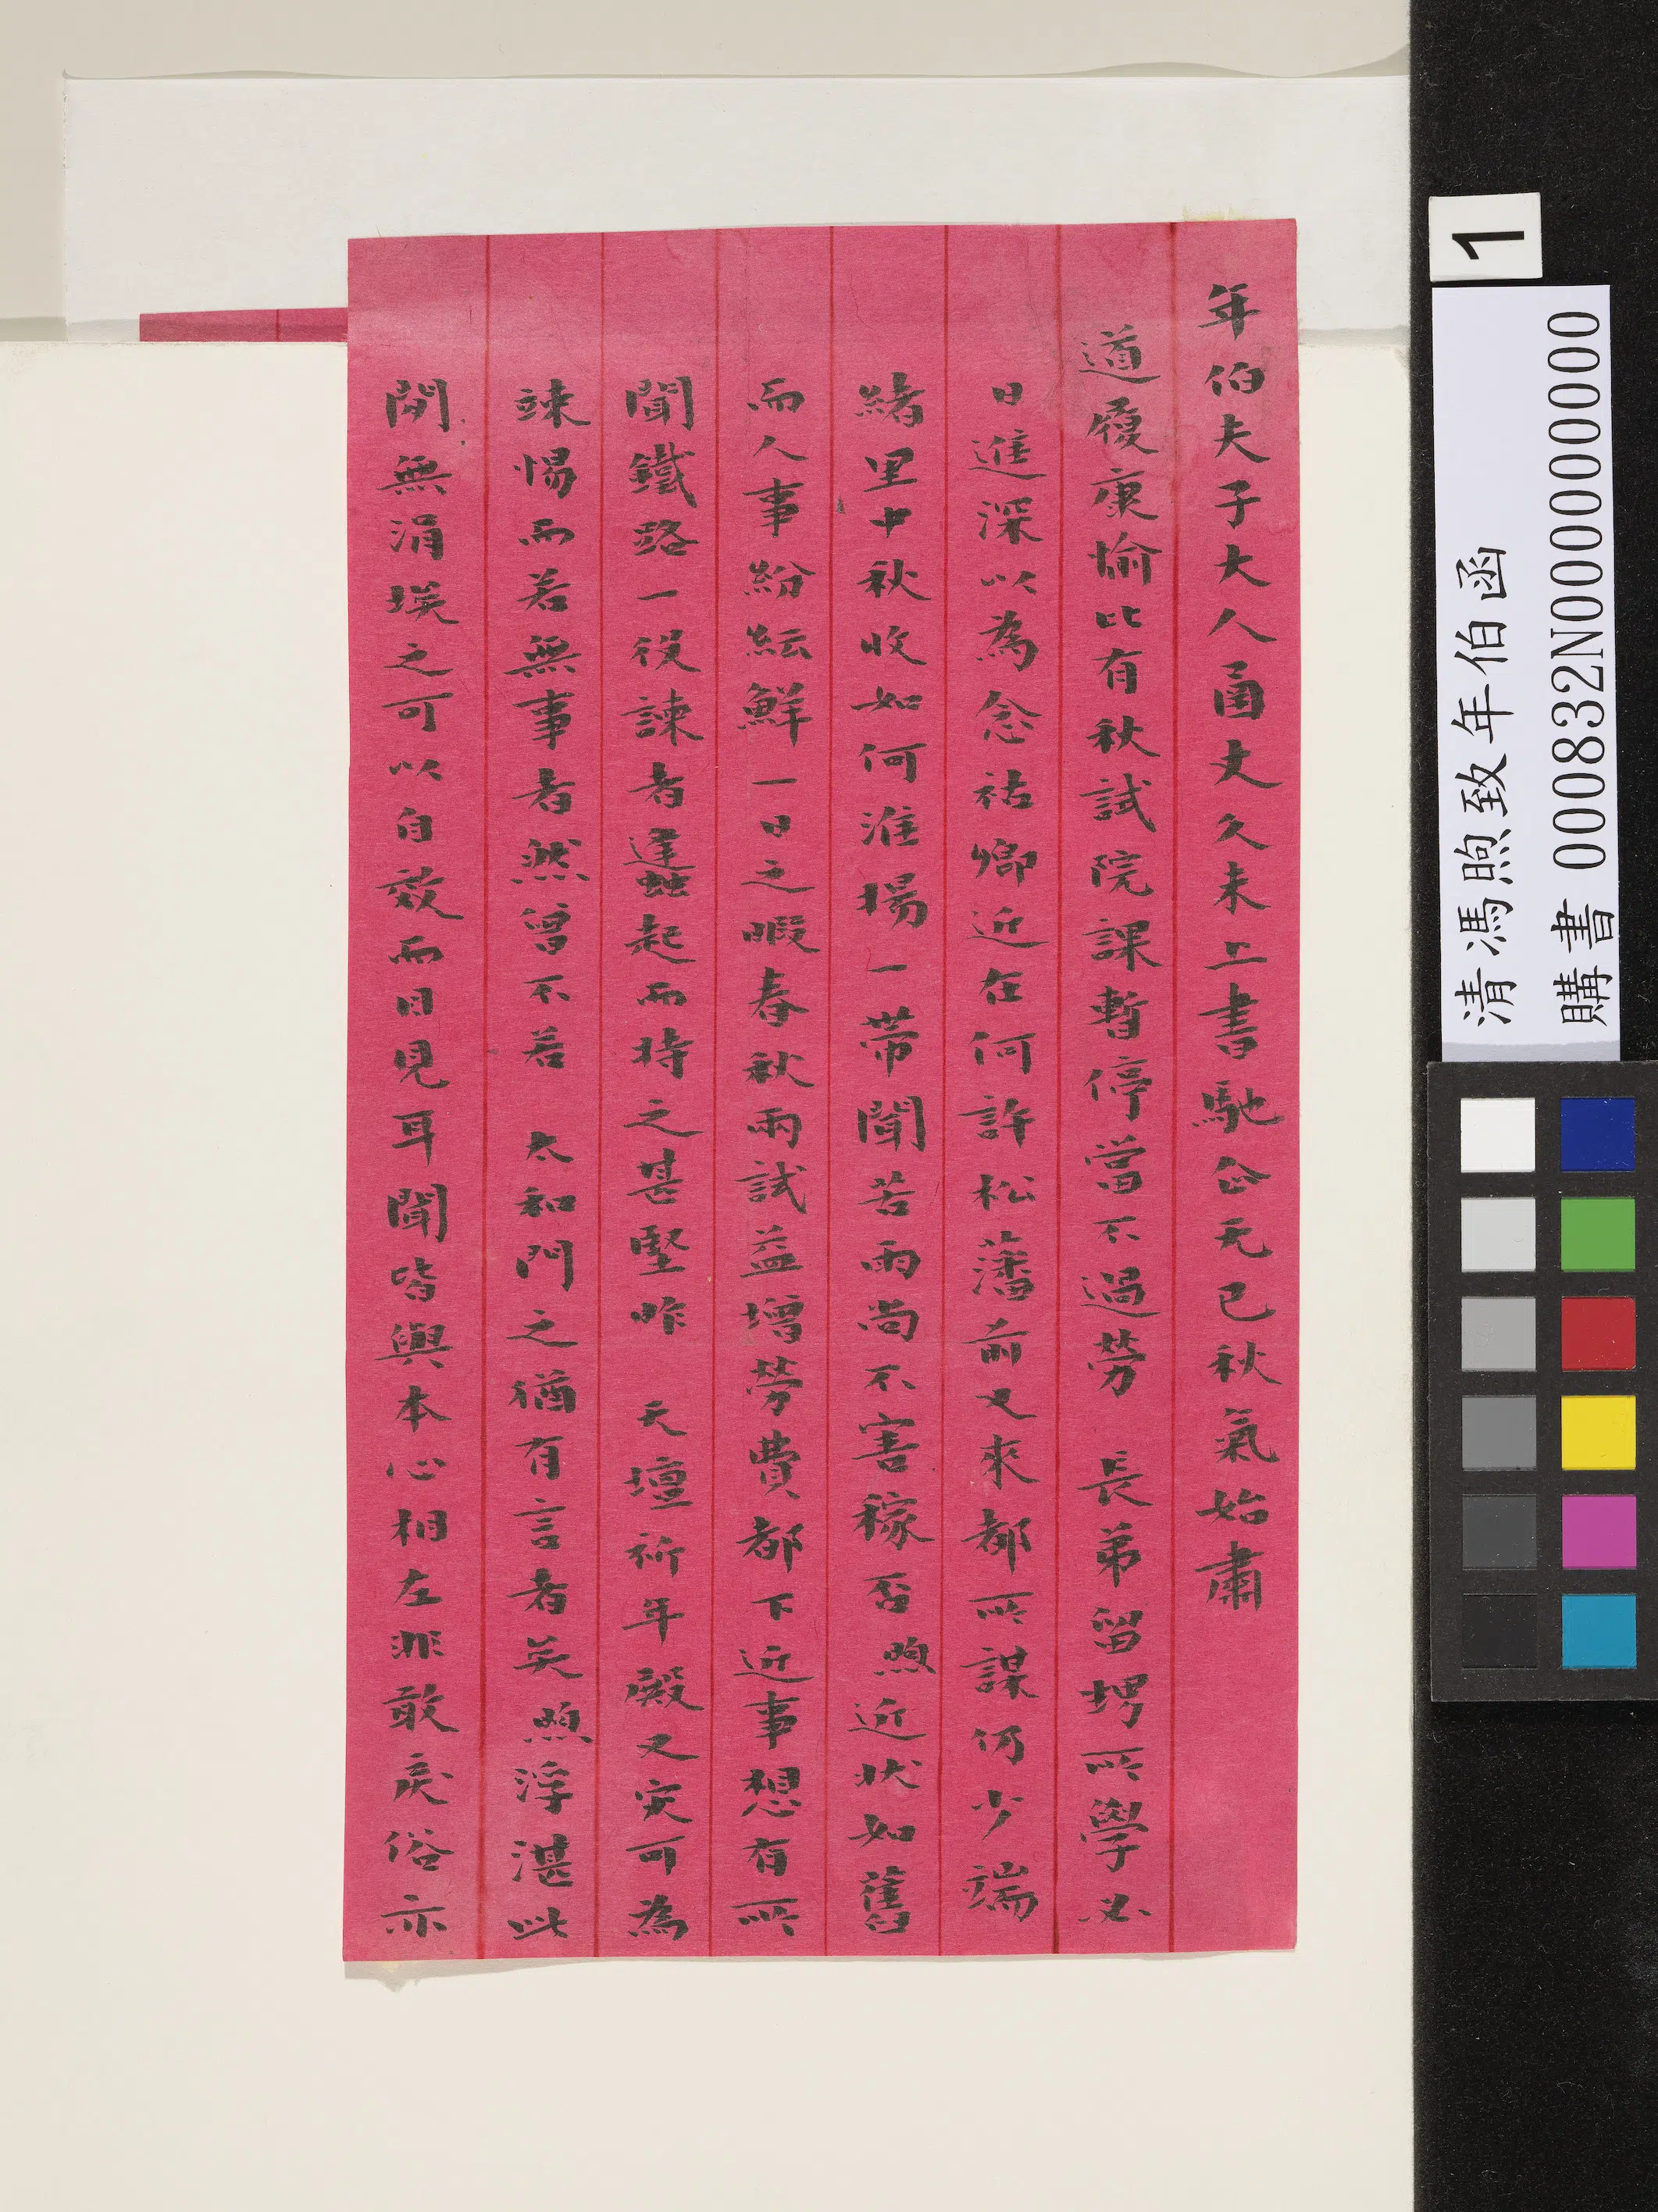 年伯夫子大人函丈久未上書馳企无已秋氣始肅
道履康愉比有秋試院課暫停當不過勞 長弟留堺所學必
日進深以為念祜卿近在何許松藩前又來都所謀仍少端
緒里中秋收如何淮揚一帶聞苦雨尚不害稼否煦近狀如舊
而人事紛紜鮮一日之暇春秋兩試益增勞費都下近事想有所
聞鐵路一役諫者蠭起而時之甚堅昨 天壇祈年殿又灾可為
竦惕而若無事者然曾不若 太和門之猶有言者矣煦浮湛此
間無涓埃之可以自效而目見耳聞皆與本心相左非敢戾俗亦
1
清馮煦致年伯函
購書 000832N000000000